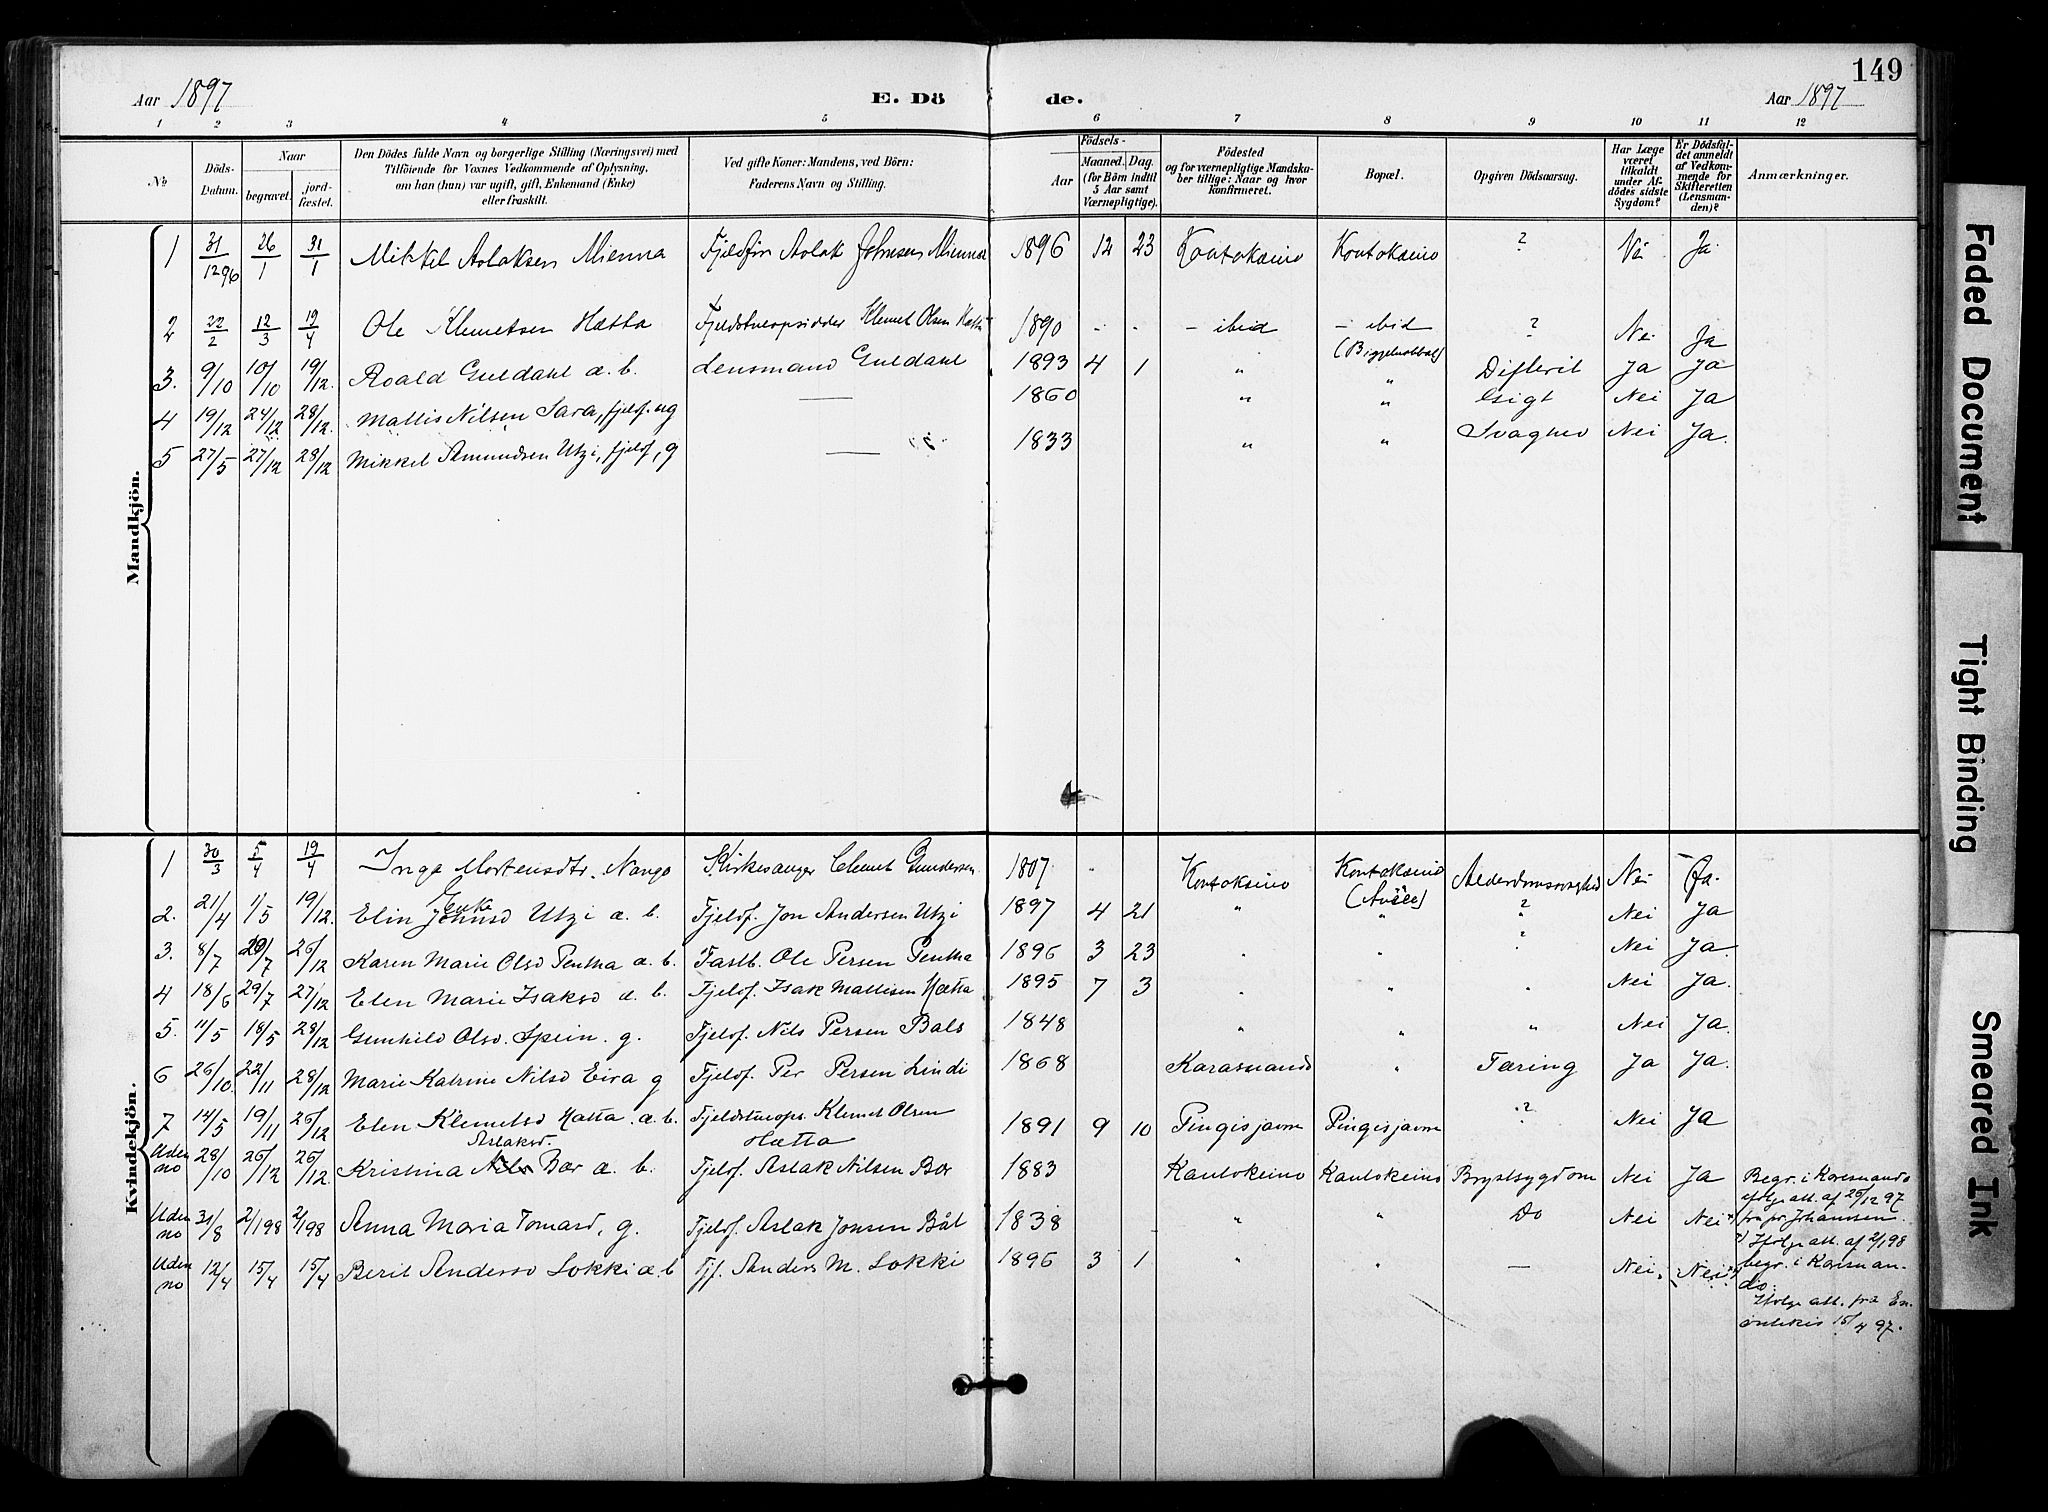 149
Aar 1897 E. Dö de. Aar 1897
1 2 3 4 5 6 7 8 9 10 11 12
No
Döds-Datum.
Naar
begravet.
jord-fæstet.
Den Dödes fulde Navn og borgerlige Stilling (Næringsvei) med
Tilföiende for Voxnes Vedkommende af Oplysning,
om han (hun) var ugift, gift, Enkemand (Enke)
eller fraskilt.
Ved gifte Koner: Mandens, ved Börn:
Faderens Navn og Stilling.
Födsels-
Aar
Maaned. Dag.
(for Börn indtil
5 Aar samt
Værnepligtige).
Födested
og for værnepligtige Mandska-
ber tillige: Naar og hvor
konfirmeret.
Bopæl.
Opgiven Dödsaarsag.
Har Læge
været
tilkaldt
under Af-
dödes sidste
Sygdom?
Er Dödsfal-
det anmeldt
af Vedkom-
mende for
Skifteretten
(Lensman-
den)?
Anmærkninger.
Mandkjön.
1 31/12 96 26/1 31/1 Mikkel Aslaksen Mienna Fjeldfin Aslak Johnsen Mienna 1896 12 23 Koutokeino Koutokeino ? Nei Ja
2 22/2 12/3 19/4 Ole Klemetsen Hætta Fjeldstueopsidder Klemet Olsen Hætta 1890 - - - ibid - ibid ? Nei Ja
3. 9/10 10/10 19/12. Roald Guldahl æ. b. Lensmand Guldahl 1893 4 1 " " Difterit Ja Ja
4 19/12 24/12 28/12. Mattis Nilsen Sara, fjelf. ug — 1860 " " Gigt Nei Ja
5 27/5 27/12 28/12 Mikkel Amundsen Utzi, fjelf, g — 1833 " " Svaghed Nei Ja.
Kvindekjön.
1 30/3 5/4 19/4 Inga Mortensdtr. Nango Kirkesanger Clemet Gundersen 1807 " Koutokeino Koutokeino Alderdomssvaghed Nei Ja.
Enke
2. 21/4 1/5 19/12. Elin Johnsd Utzi æ. b. Fjelf. Jon Andersen Utzi 1897 4 21 " " ? Nei Ja
3. 8/7 29/7 26/12 Karen Marie Olsd Pentha æ. b. Fastb. Ole Persen Pentha 1896 3 23 " " ? Nei Ja.
4 18/6 29/7 27/12 Elen Marie Isaksd æ. b. Fjelf. Isak Mattisen Hætta 1895 7 3 " " " Nei Ja.
5. 11/5 18/5 28/12 Gunhild Olsd. Spein. g. Fjelf. Nils Persen Bals 1848 " " " Nei Ja.
6 26/10. 22/11 28/12 Marie Katrine Nilsd Eira g Fjelf. Per Persen Lindi 1868 Karasuando " Tæring Ja Ja.
7 14/5 19/11 26/12 Elen Klemetsd Hætta. æ. b. Fjeldstueops. Klemet Olsen
Hætta 1891 9 10 Pingisjavre Pingisjavre ? Nei Ja
Uden no 28/10 26/12 26/12. Kristina Aslaksd. Bær æ. b. Fjelf. Aslak Nilsen Bær 1883 Kautokeino Kautokeino Brystsygdom Nei Ja Begr. i Karesuando
ifølge att. af 26/12 97
fra pr Johansen.
Uden no 31/8 2/1 98 2/1 98 Anna Maria Tomasd, g. Fjelf. Aslak Jonsen Bål 1838 " " Do Nei Nei *) Ifølge att. af 2/1 98
begr. i Karesuan-
do.
Uden no 12/4 15/4 15/4 Berit Andersd Lokki æ. b Fjf. Anders M. Lokki 1896 3 1 " " — Nei. Nei Ifølge att. fra En-
ontekis 15/4 97.
Faded Document
Tight Binding
Smeared Ink